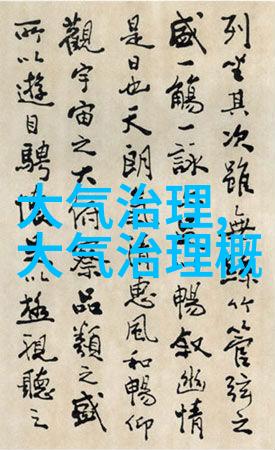 列坐其次雖無絲竹管弦之
盛一觴一詠足暢叙幽情
是日也天朗清惠風和暢仰
觀宇宙之大俯察品類之盛
所以遊目騁懷足以極視聽之
大气治理,
大气治理概